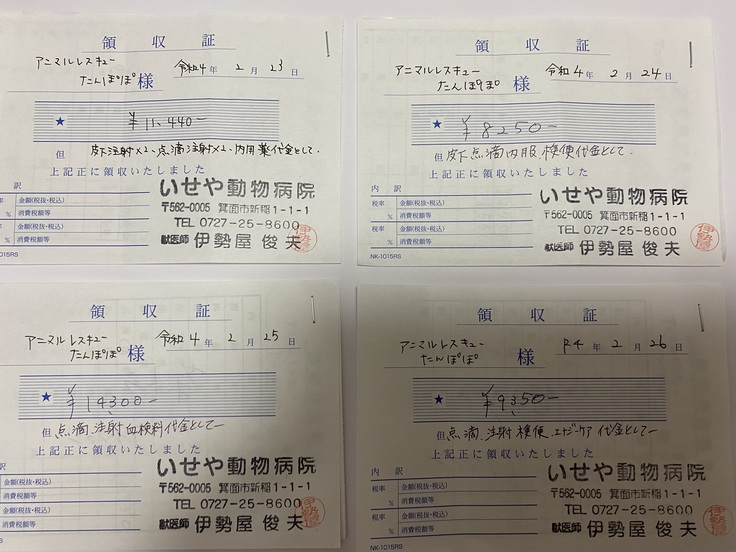 領収証
アニマルレスキュー
たんぽぽ 様
令和4年 2月 23日
★ ¥11,440-
但 皮下注射×2、点滴注射×2、内用薬代金として.
上記正に領収いたしました
訳
金額(税抜・税込)
% 消費税額等
金額(税抜・税込)
% 消費税額等
NK-1015RS
いせや動物病院
〒562-0005 箕面市新稲1-1-1
TEL 0727-25-8600
獣医師 伊勢屋 俊夫
領収証
アニマルレスキュー
たんぽぽ 様
令和4年 2月 24日
★ ¥8250-
但 皮下点滴、内服、検便代金として.
上記正に領収いたしました
内訳
税率 金額(税抜・税込)
% 消費税額等
税率 金額(税抜・税込)
% 消費税額等
NK-1015RS
いせや動物病院
〒562-0005 箕面市新稲1-1-1
TEL 0727-25-8600
獣医師 伊勢屋 俊夫
領収証
アニマルレスキュー
たんぽぽ 様
令和4年 2月 25日
★ ¥14300-
但 点滴、注射、血検料代金として
上記正に領収いたしました
訳
金額(税抜・税込)
消費税額等
金額(税抜・税込)
消費税額等
いせや動物病院
〒562-0005 箕面市新稲1-1-1
TEL 0727-25-8600
獣医師 伊勢屋 俊夫
領収証
アニマルレスキュー
たんぽぽ 様
R4年 2月 26日
★ ¥9350-
但 点滴、注射、検便、エナジーケア代金として
上記正に領収いたしました
内訳
税率 金額(税抜・税込)
% 消費税額等
税率 金額(税抜・税込)
% 消費税額等
NK-1015RS
いせや動物病院
〒562-0005 箕面市新稲1-1-1
TEL 0727-25-8600
獣医師 伊勢屋 俊夫